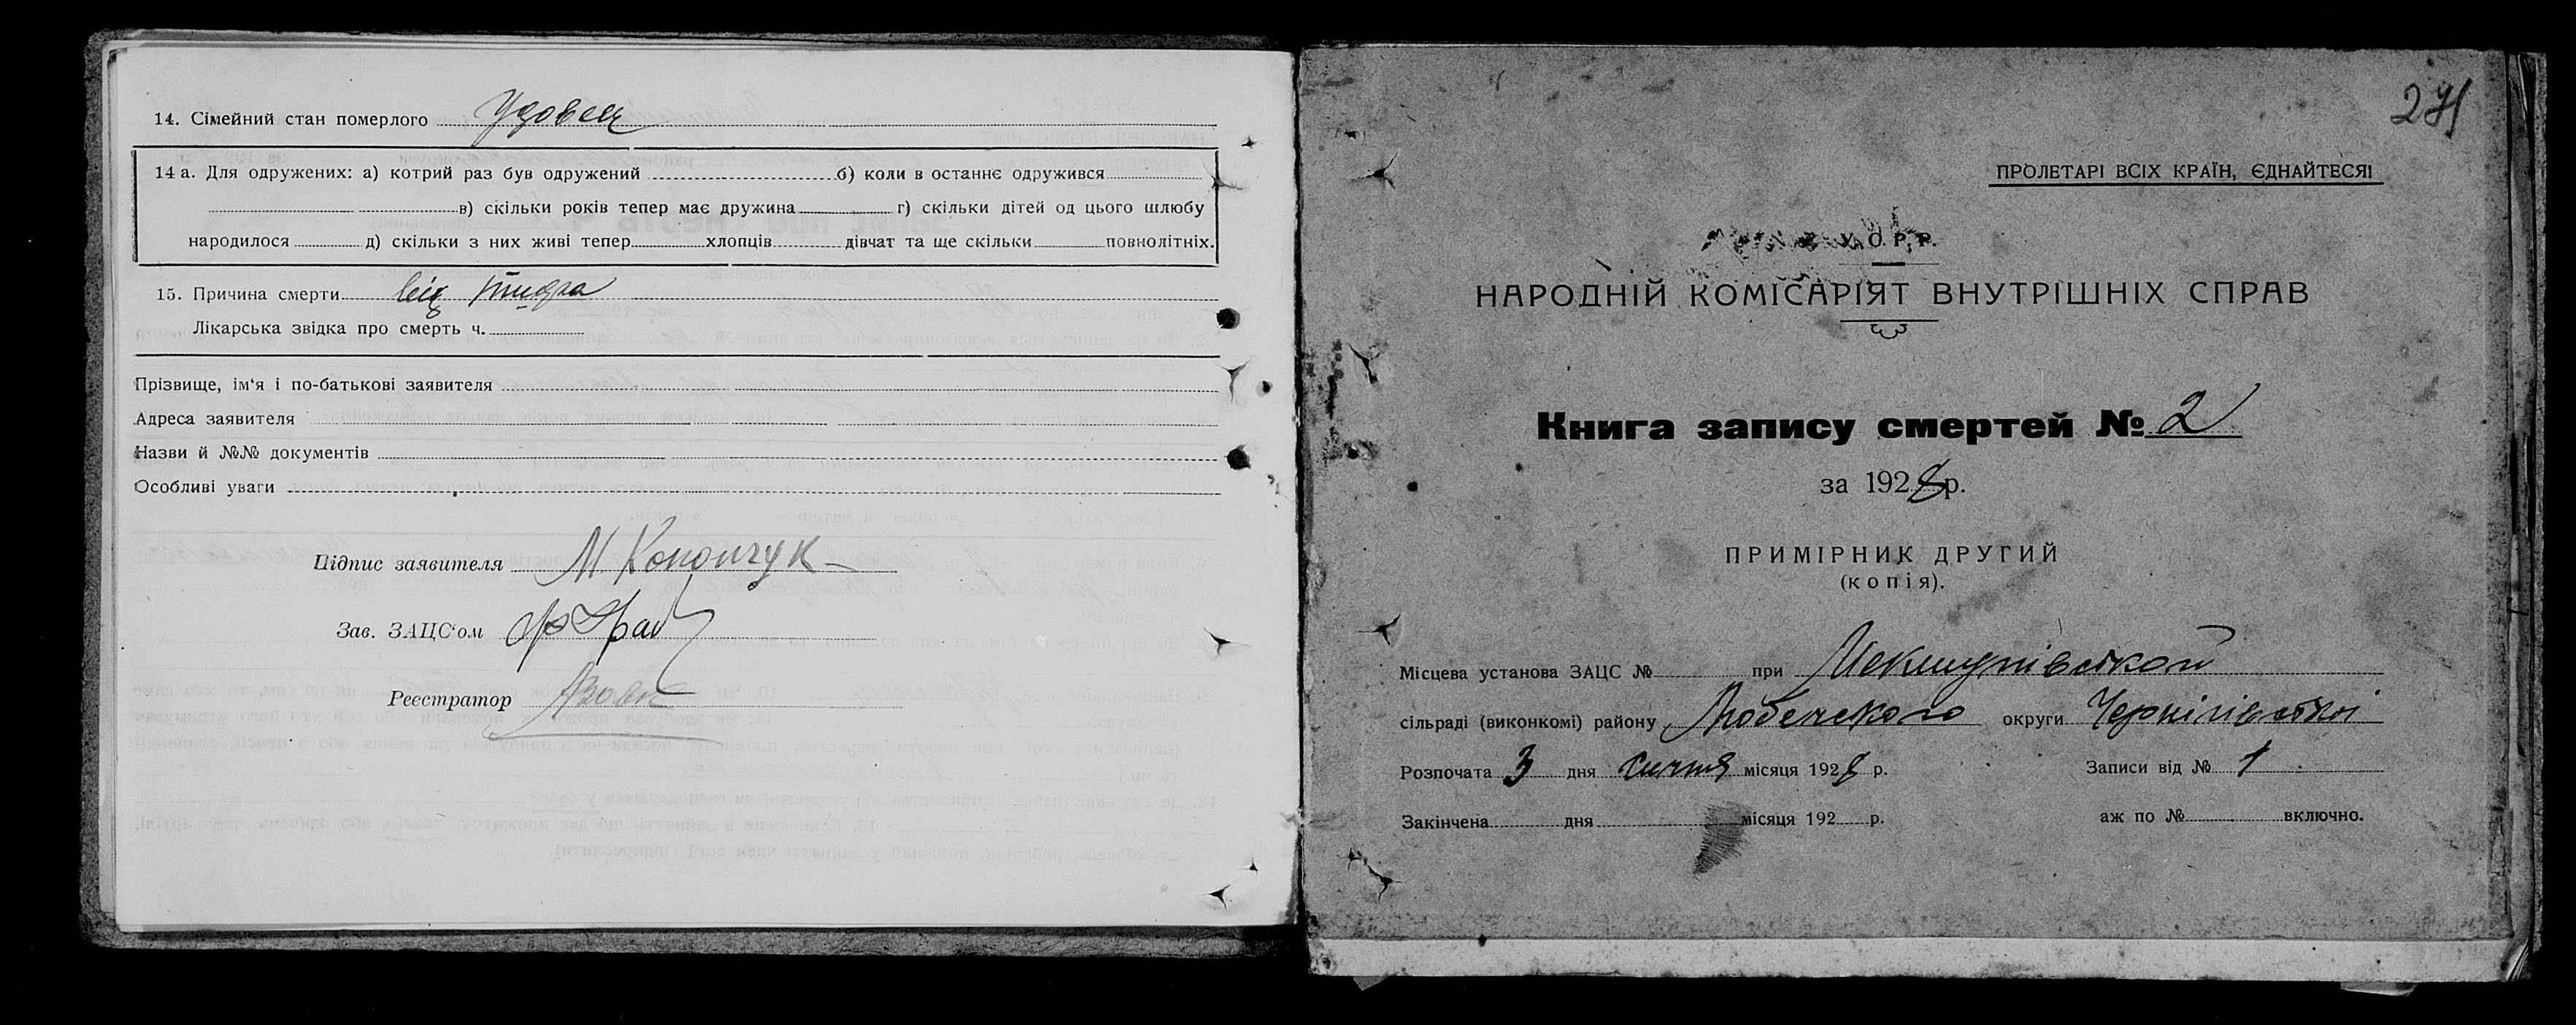 14. Сімейний стан померлого Удовец
14 а. Для одружених: а) котрий раз був одружений б) коли в останнє одружився
в) скільки років тепер має дружина г) скільки дітей од цього шлюбу
народилося д) скільки з них живі тепер хлопців дівчат та ще скільки повнолітніх.
15. Причина смерти від тифа
Лікарська звідка про смерть ч.
Прізвище, ім'я і по-батькові заявителя
Адреса заявителя
Назви й №№ документів
Особливі уваги
Підпис заявителя М. Конончук
Зав. ЗАЦС'ом
Реєстратор
271
ПРОЛЕТАРІ ВСІХ КРАЇН, ЄДНАЙТЕСЯ!
У. С. Р. Р.
НАРОДНІЙ КОМІСАРІЯТ ВНУТРІШНІХ СПРАВ
Книга запису смертей № 2
за 1928 р.
ПРИМІРНИК ДРУГИЙ
(копія).
Місцева установа ЗАЦС № при
сільраді (виконкомі) району Любечского округи Чернігівської
Розпочата 3 дня Січня місяця 1928 р. Записи від № 1
Закінчена дня місяця 192 р. аж по № включно.